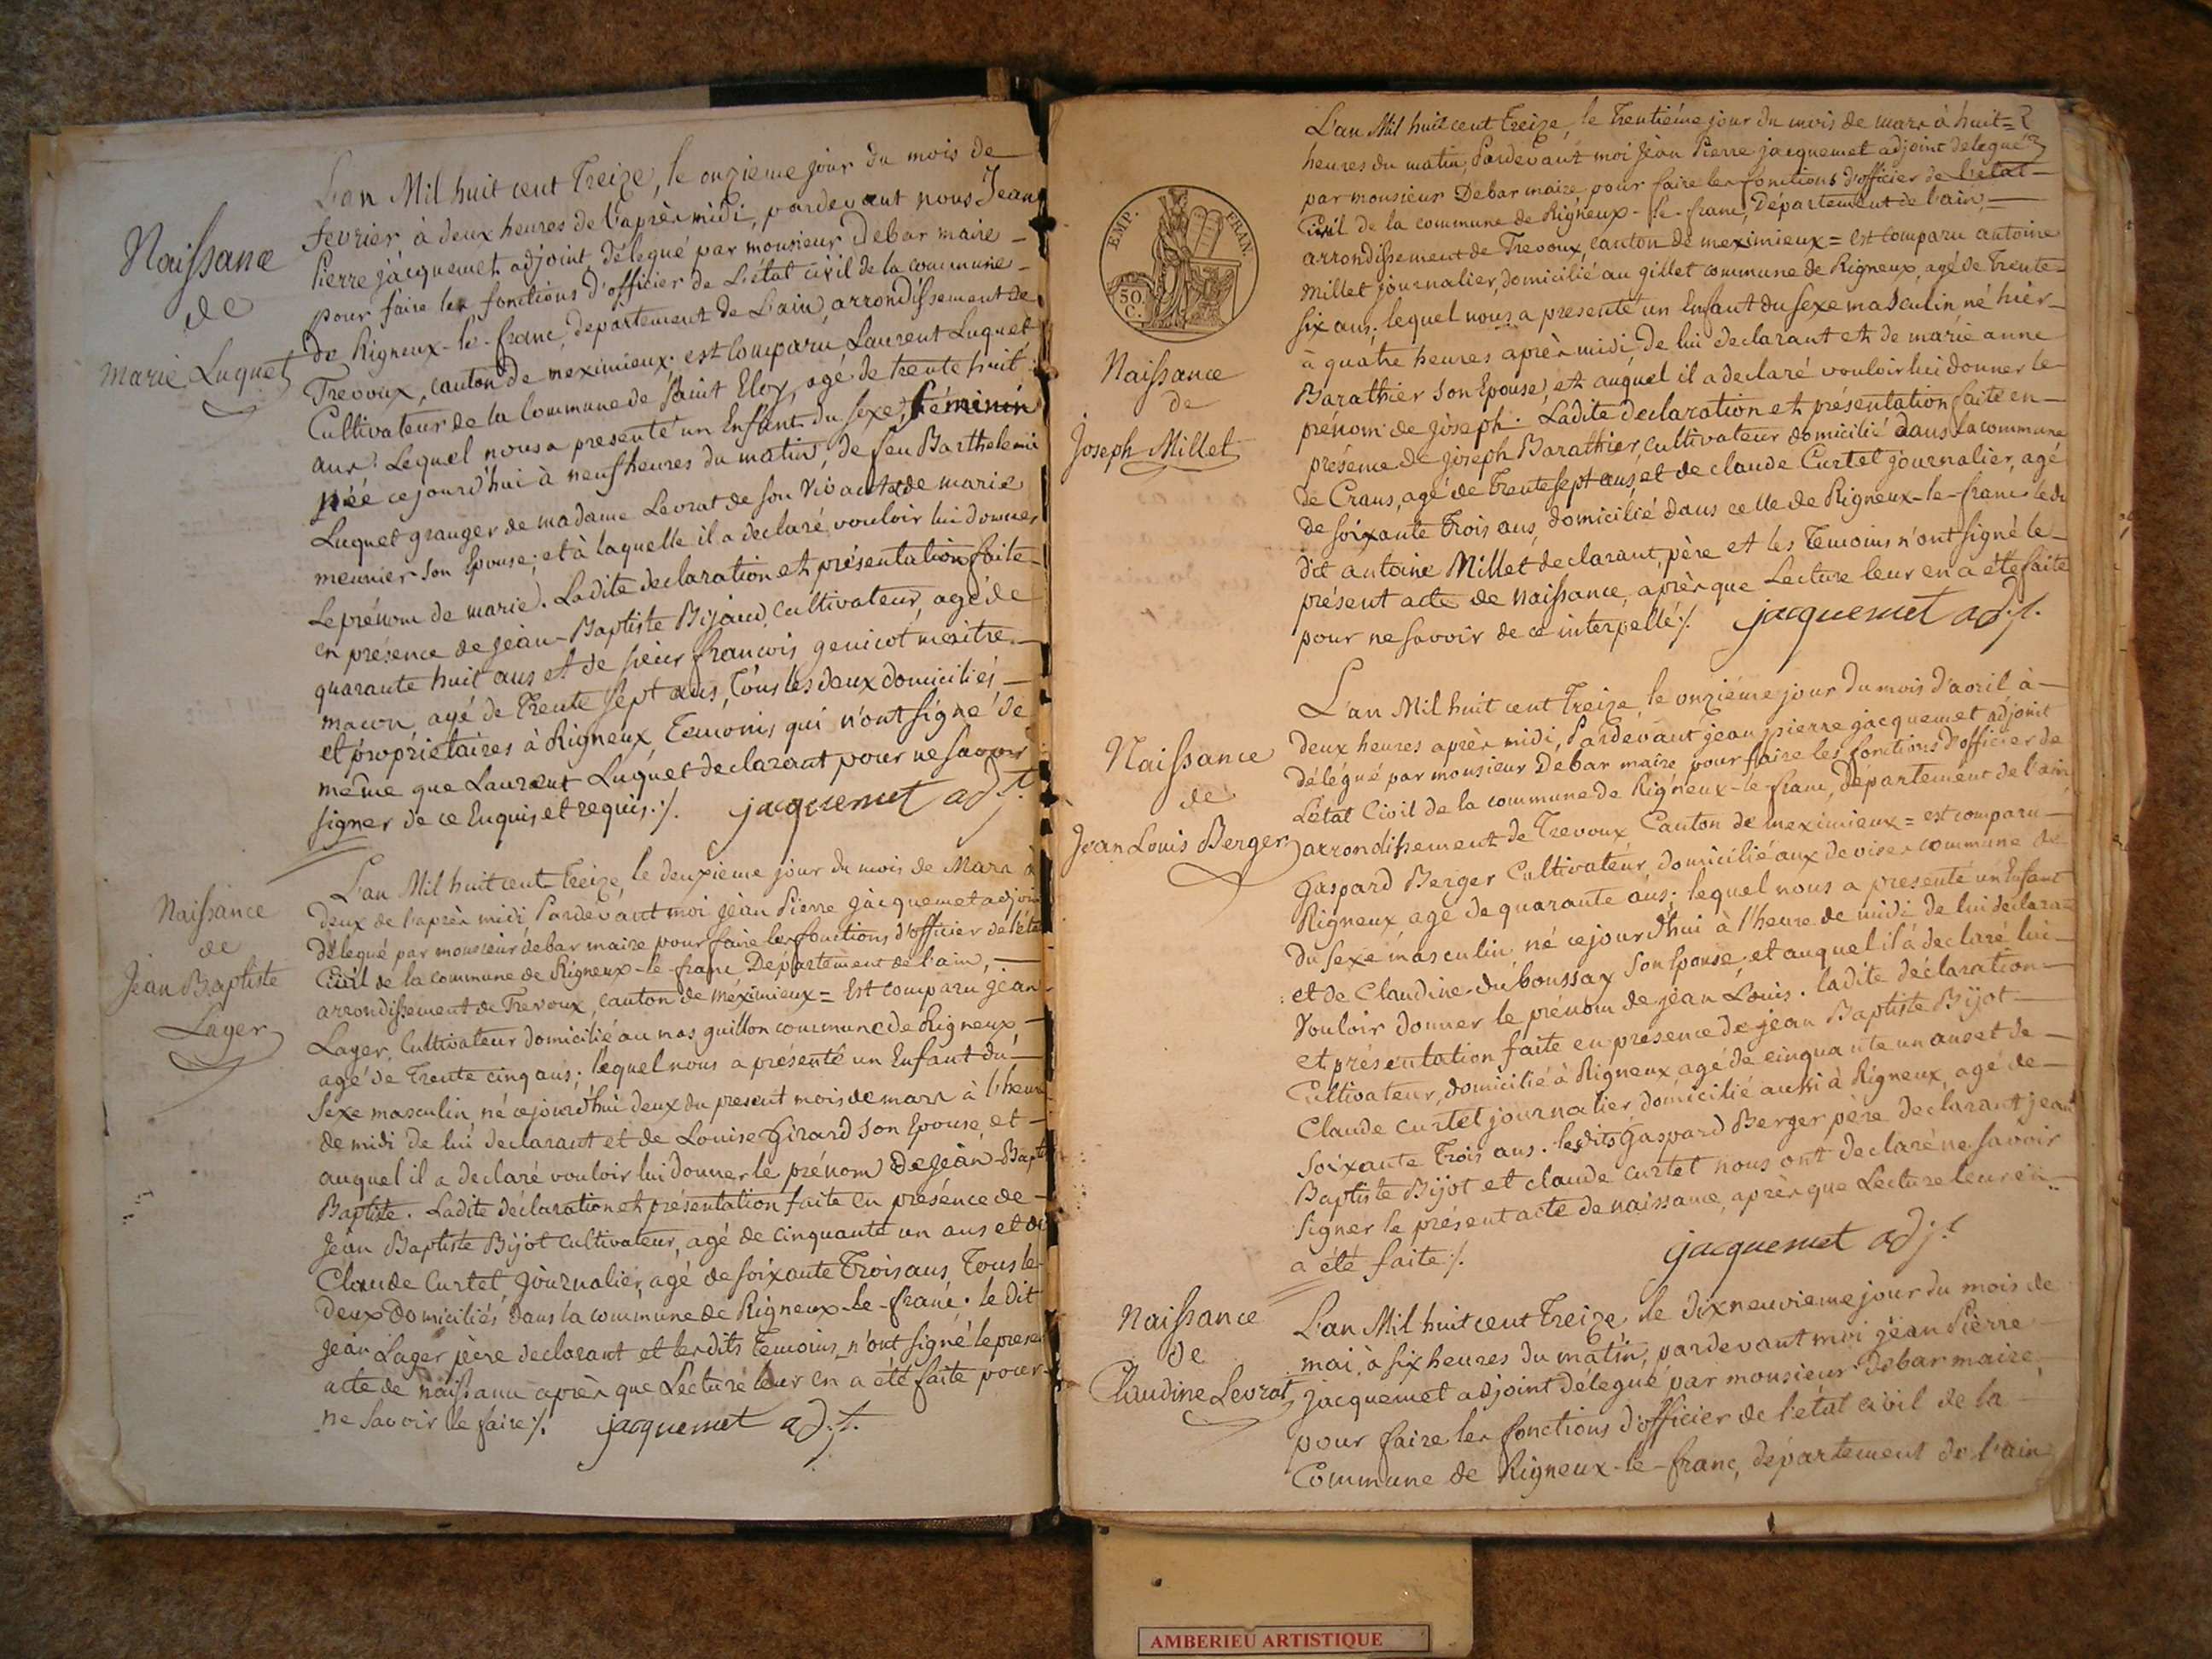 Naissance
de
Marie Luquet
L'an Mil huit cent Treize, le onzieme jour du mois de
fevrier, à deux heures de l'après midi, pardevant nous Jean
Pierre jacquemet adjoint délegué par monsieur Debar maire
pour faire les fonctions d'officier de L'état civil de la commune
de Rigneux-le-franc, departement de L'ain, arrondissement de
Trevoux, canton de meximieux. est Comparu Laurent Luquet
Cultivateur de la Commune de Saint Eloy, agé de trente huit
ans. Lequel nous a presenté un Enfant du sexe féminin
née cejourd'hui à neuf heures du matin, de feu Barthelemi
Luquet granger de madame Levrat de son vivant et de marie
meunier son Epouse; et à laquelle il a declaré vouloir lui donner
Le prénom de marie. Ladite declaration et présentation faite
en présence de jean-Baptiste Bijaud, Cultivateur, agé de
quarante huit ans et de sieur francois genicot maitre
macon, agé de Trente sept ans, Tous les deux domiciliés
et proprietaires à Rigneux, Temoins qui n'ont signé de
même que Laurent Luquet declarant pour ne savoir
signer de ce Enquis et requis./. jacquemet adj.t
Naissance
de
Jean Baptiste
Lager
L'an Mil huit cent Treize, le deuxieme jour du mois de Mars à
deux de l'après midi, Pardevant moi jean Pierre jacquemet adjoint
délegué par monsieur debar maire pour faire les fonctions d'officier de l'état
Civil de la commune de Rigneux-le-franc Departement de l'ain,
arrondissement de Trevoux, canton de méximieux = Est comparu jean
Lager, Cultivateur domicilié au mas guillon commune de Rigneux
agé de Trente cinq ans; lequel nous a présenté un Enfant du
Sexe masculin, né cejourd'hui deux du present mois de mars à l'heure
de midi de lui declarant et de Louise Girard son Epouse, et
auquel il a declaré vouloir lui donner le prénom de jean-Bapt
Baptiste. Ladite déclaration et présentation faite en présence de
Jean Baptiste Bijot cultivateur, agé de cinquante un ans et de
Claude Curtet, journalier, agé de soixante Trois ans, Tous les
deux domiciliés dans la commune de Rigneux-le-franc. le dit
jean Lager père declarant et lesdits Temoins n'ont signé le present
acte de naissance après que Lecture leur en a été faite pour
ne savoir le faire./. jacquemet adj.t
EMP. FRAN.
50.
C.
Naissance
de
Joseph Millet
L'an Mil huit cent Treize, le Trentième jour du mois de mars à huit = 2
heures du matin, Pardevant moi Jean Pierre jacquemet adjoint delegué
par monsieur Debar maire pour faire les fonctions d'officier de l'état
Civil de la commune de Rigneux-le-franc, Département de l'ain,
arrondissement de Trevoux, canton de meximieux = est comparu antoine
Millet journalier, domicilié au gillet commune de Rigneux, agé de Trente
six ans; lequel nous a presenté un Enfant du sexe masculin, né hier
à quatre heures après midi, de lui declarant et de marie anne
Barathier son Epouse, et auquel il a declaré vouloir lui donner le
prénom de joseph. Ladite declaration et présentation faite en
présence de joseph Barathier, cultivateur domicilié dans la commune
de Crans, agé de Trente sept ans, et de claude Curtet journalier, agé
de soixante Trois ans, domicilié dans celle de Rigneux-le-franc. le du
dit antoine Millet declarant, père et les Temoins n'ont signé le
présent acte de naissance, après que Lecture leur en a été faite
pour ne savoir de ce interpellé./. jacquemet adj.t
Naissance
de
Jean Louis Berger
L'an Mil huit cent Treize, le onzième jour du mois d'avril, à
deux heures après midi, Pardevant jean pierre jacquemet adjoint
délégué par monsieur Debar maire pour faire les fonctions d'officier de
L'état Civil de la commune de Rigneux-le-franc, departement de l'ain,
arrondissement de Trevoux Canton de meximieux = est comparu
Gaspard Berger Cultivateur, domicilié aux devises commune de
Rigneux, agé de quarante ans; lequel nous a presenté un Enfant
du sexe masculin, né cejourd'hui à l'heure de midi de lui declarant
et de Claudine duboussay son Epouse, et auquel il a declaré lui
vouloir donner le prénom de jean Louis. ladite déclaration
et présentation faite en presence de jean Baptiste Bijot
Cultivateur, domicilié à Rigneux agé de cinquante un ans et de
Claude curtet journalier, domicilié aussi à Rigneux, agé de
soixante Trois ans. lesdits Gaspard Berger père declarant jean
Baptiste Bijot et claude curtet nous ont declaré ne savoir
signer le présent acte de naissance, après que Lecture leur en
a été faite./. jacquemet adj.t
Naissance
de
Claudine Levrat
L'an Mil huit cent Treize, le dixneuvieme jour du mois de
mai, à six heures du matin, pardevant moi jean Pierre
jacquemet adjoint délegué par monsieur debar maire
pour faire les fonctions d'officier de l'état civil de la
Commune de Rigneux-le-franc, departement de l'ain
AMBERIEU ARTISTIQUE